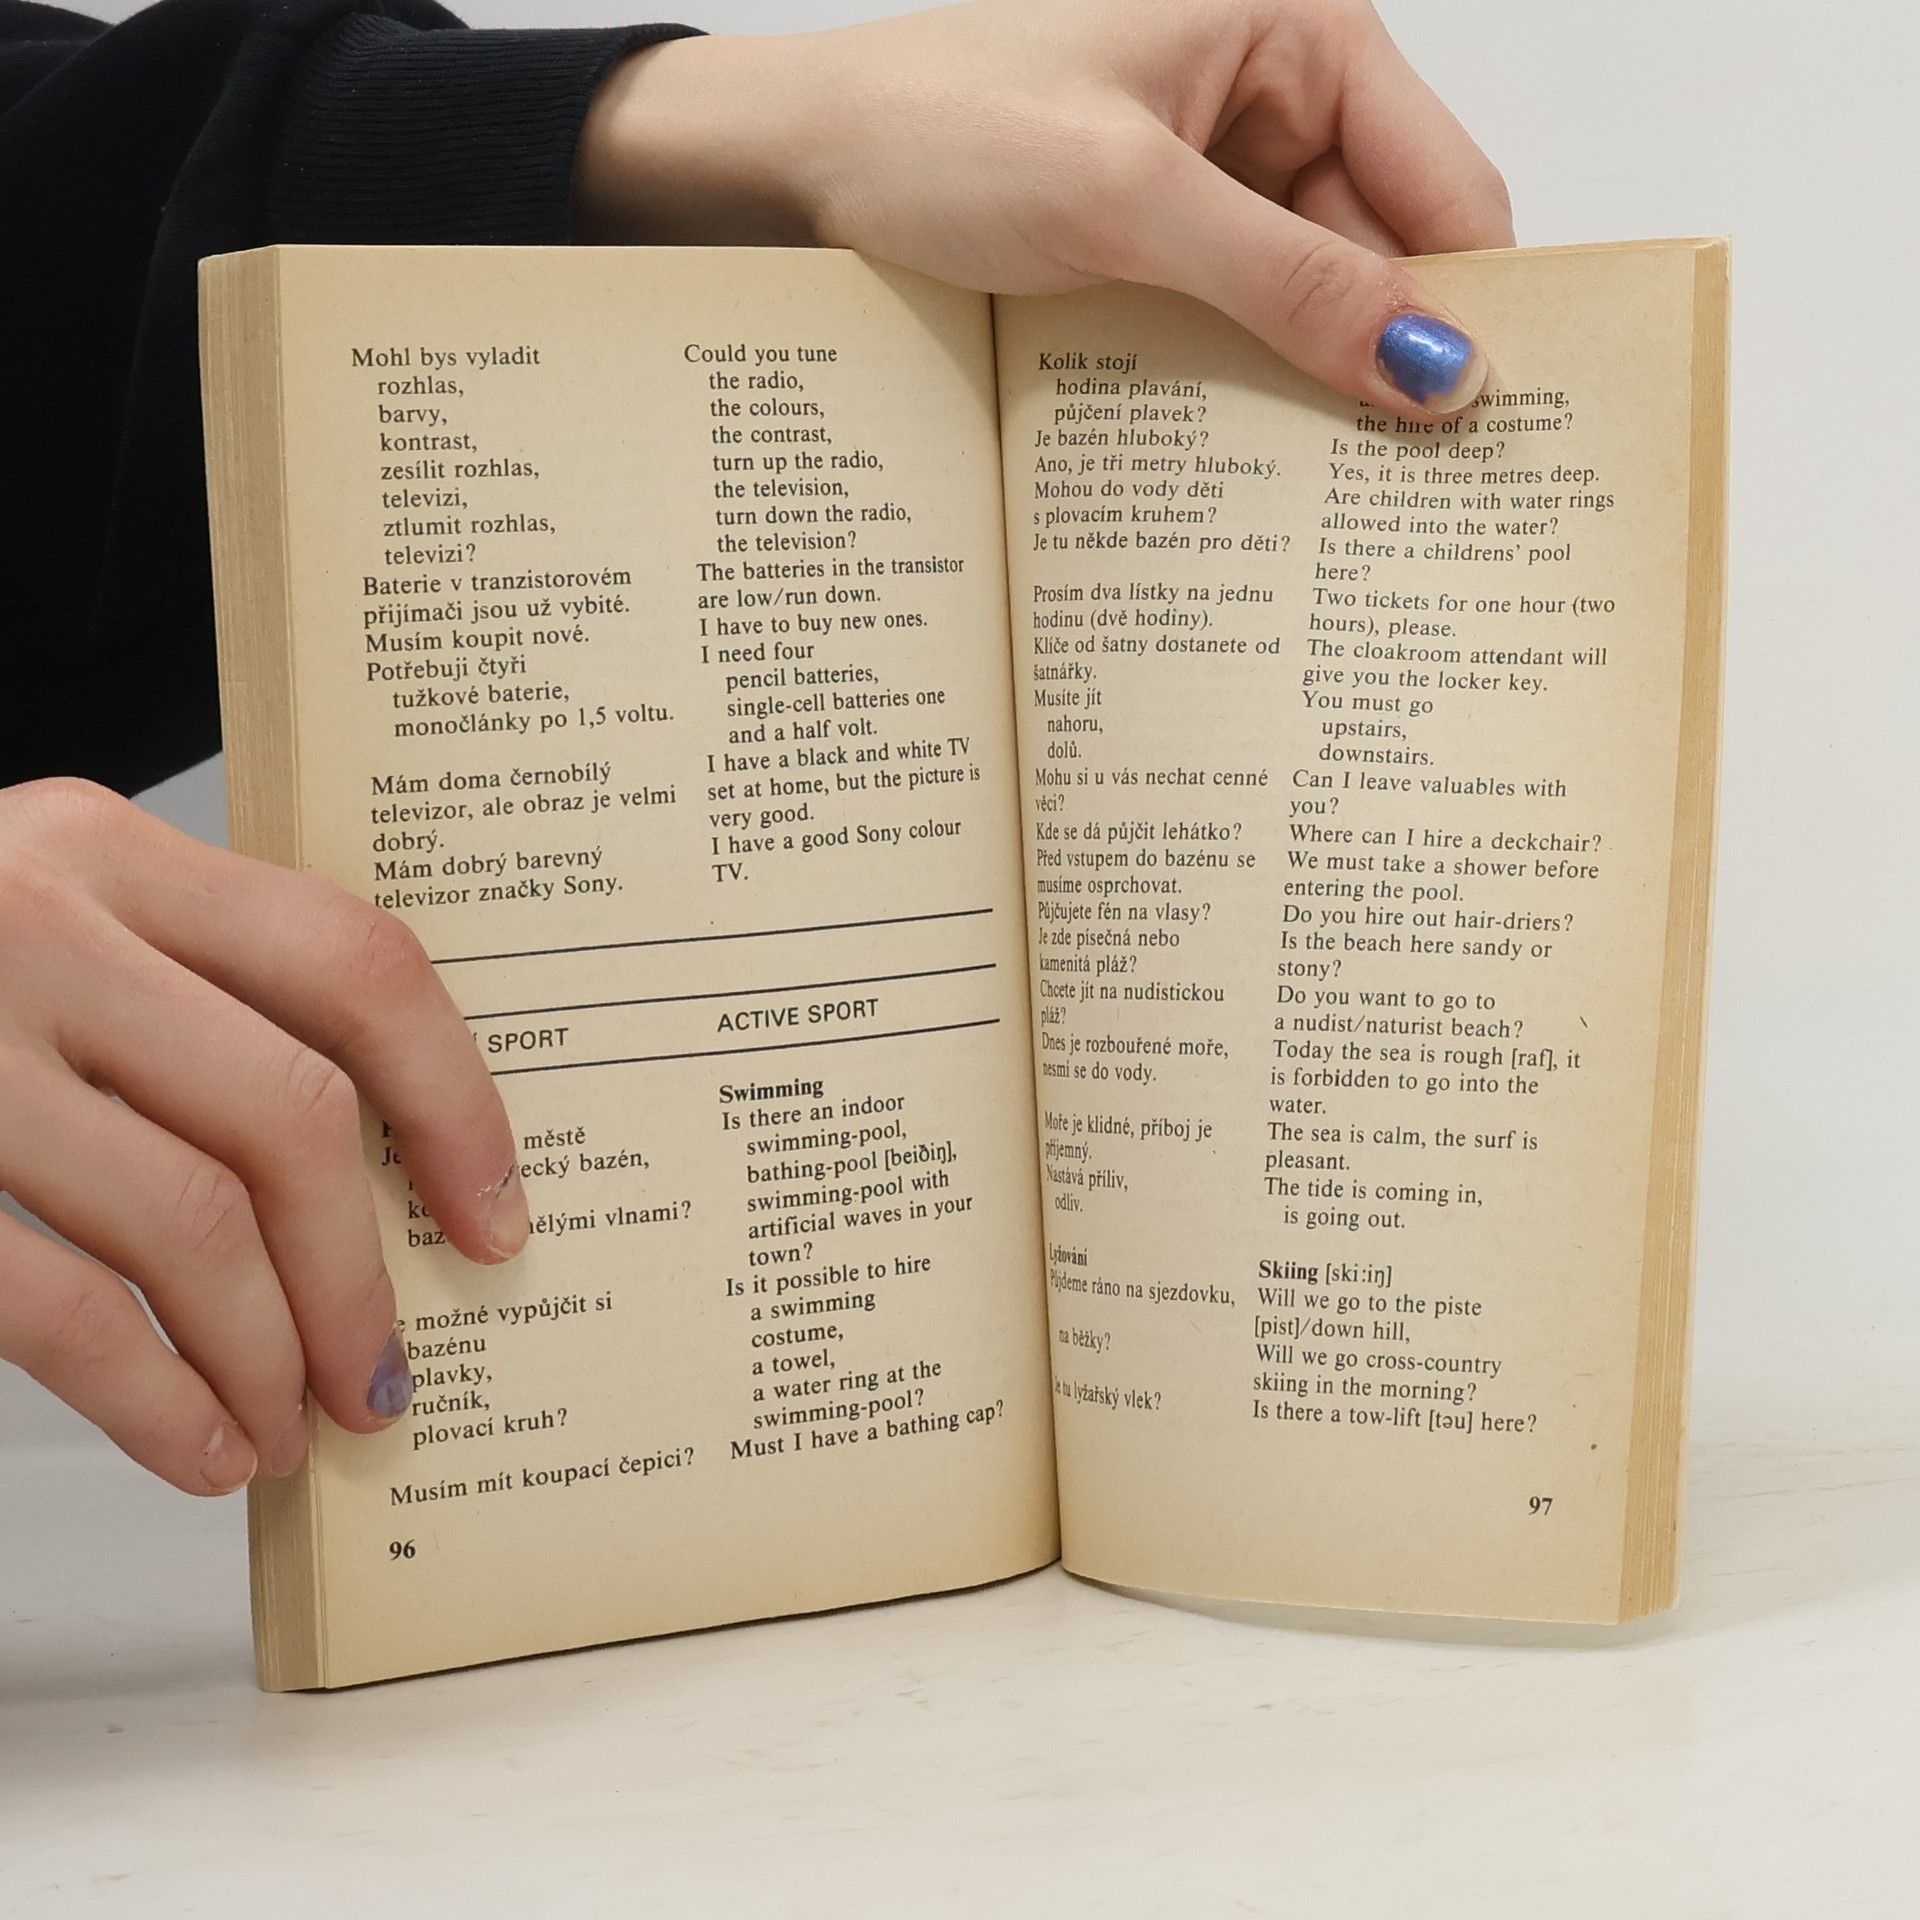 Mohl bys vyladit
rozhlas,
barvy,
kontrast,
zesílit rozhlas,
televizi,
ztlumit rozhlas,
televizi?
Baterie v tranzistorovém
přijímači jsou už vybité.
Musím koupit nové.
Potřebuji čtyři
tužkové baterie,
monočlánky po 1,5 voltu.
Mám doma černobílý
televizor, ale obraz je velmi
dobrý.
Mám dobrý barevný
televizor značky Sony.
Could you tune
the radio,
the colours,
the contrast,
turn up the radio,
the television,
turn down the radio,
the television?
The batteries in the transistor
are low/run down.
I have to buy new ones.
I need four
pencil batteries,
single-cell batteries one
and a half volt.
I have a black and white TV
set at home, but the picture is
very good.
I have a good Sony colour
TV.
SPORT
ACTIVE SPORT
městě
bazén,
vlnami?
možné vypůjčit si
bazénu
plavky,
ručník,
plovací kruh?
Musím mít koupací čepici?
Swimming
Is there an indoor
swimming-pool,
bathing-pool [beiðiŋ],
swimming-pool with
artificial waves in your
town?
Is it possible to hire
a swimming
costume,
a towel,
a water ring at the
swimming-pool?
Must I have a bathing cap?
96
Kolik stojí
hodina plavání,
půjčení plavek?
Je bazén hluboký?
Ano, je tři metry hluboký.
Mohou do vody děti
s plovacím kruhem?
Je tu někde bazén pro děti?
Prosím dva lístky na jednu
hodinu (dvě hodiny).
Klíče od šatny dostanete od
šatnářky.
Musíte jít
nahoru,
dolů.
Mohu si u vás nechat cenné
věci?
Kde se dá půjčit lehátko?
Před vstupem do bazénu se
musíme osprchovat.
Půjčujete fén na vlasy?
Je zde písečná nebo
kamenitá pláž?
Chcete jít na nudistickou
pláž?
Dnes je rozbouřené moře,
nesmí se do vody.
Moře je klidné, příboj je
příjemný.
Nastává příliv,
odliv.
Lyžování
Půjdeme ráno na sjezdovku,
na běžky?
Je tu lyžařský vlek?
swimming,
the hire of a costume?
Is the pool deep?
Yes, it is three metres deep.
Are children with water rings
allowed into the water?
Is there a childrens' pool
here?
Two tickets for one hour (two
hours), please.
The cloakroom attendant will
give you the locker key.
You must go
upstairs,
downstairs.
Can I leave valuables with
you?
Where can I hire a deckchair?
We must take a shower before
entering the pool.
Do you hire out hair-driers?
Is the beach here sandy or
stony?
Do you want to go to
a nudist/naturist beach?
Today the sea is rough [raf], it
is forbidden to go into the
water.
The sea is calm, the surf is
pleasant.
The tide is coming in,
is going out.
Skiing [ski:iŋ]
Will we go to the piste
[pist]/down hill,
Will we go cross-country
skiing in the morning?
Is there a tow-lift [təu] here?
97